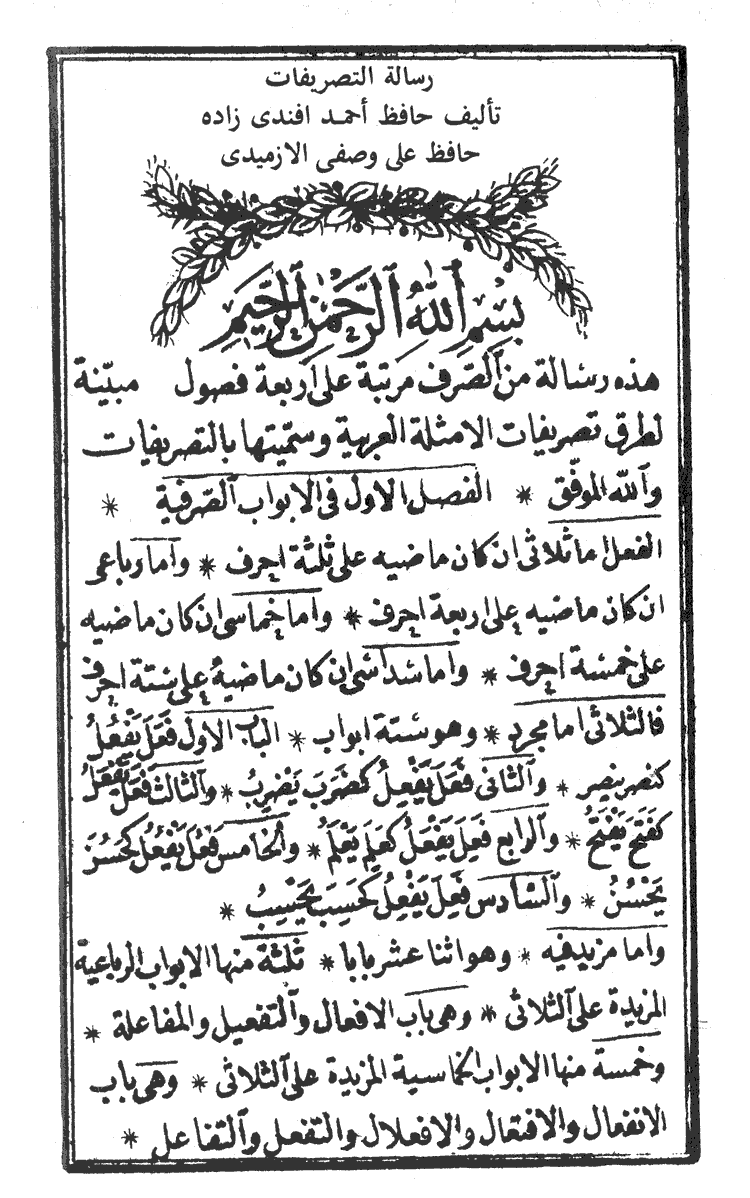 رسالة التصريفات
تأليف حافظ أحمد افندى زاده
حافظ على وصفى الازميدى
بِسْمِ اللّٰهِ الرَّحْمٰنِ الرَّحِيمِ
هذه رسالة من الصَّرف مرتبة على اربعة فصول مبيّنة
لطرق تصريفات الامثلة العربية وسمّيتها بالتصريفات
والله الموفّق * الفصل الاول فى الابواب الصّرفية *
الفعل اما ثلاثى ان كان ماضيه على ثلثة احرف * واما رباعى
ان كان ماضيه على اربعة احرف * واما خماسى ان كان ماضيه
على خمسة احرف * واما سداسى ان كان ماضيه على ستة احرف
فالثلاثى اما مجرد * وهو ستة ابواب * الباب الاول فَعَلَ يَفْعُلُ
كنصر ينصر * والثانى فَعَلَ يَفْعِلُ كضَرَبَ يَضْرِبُ * والثالث فَعَلَ يَفْعَلُ
كفَتَحَ يَفْتَحُ * والرابع فَعِلَ يَفْعَلُ كعَلِمَ يَعْلَمُ * والخامس فَعُلَ يَفْعُلُ كحَسُنَ
يَحْسُنُ * والسّادس فَعِلَ يَفْعِلُ كَحَسِبَ يَحْسِبُ *
واما مزيد فيه * وهو اثنا عشر بابا * ثلثة منها الابواب الرباعية
المزيدة على الثلاثى * وهى باب الافعال والتفعيل والمفاعلة *
وخمسة منها الابواب الخماسية المزيدة على الثلاثى * وهى باب
الانفعال والافتعال والافعلال والتفعل والتفاعل *